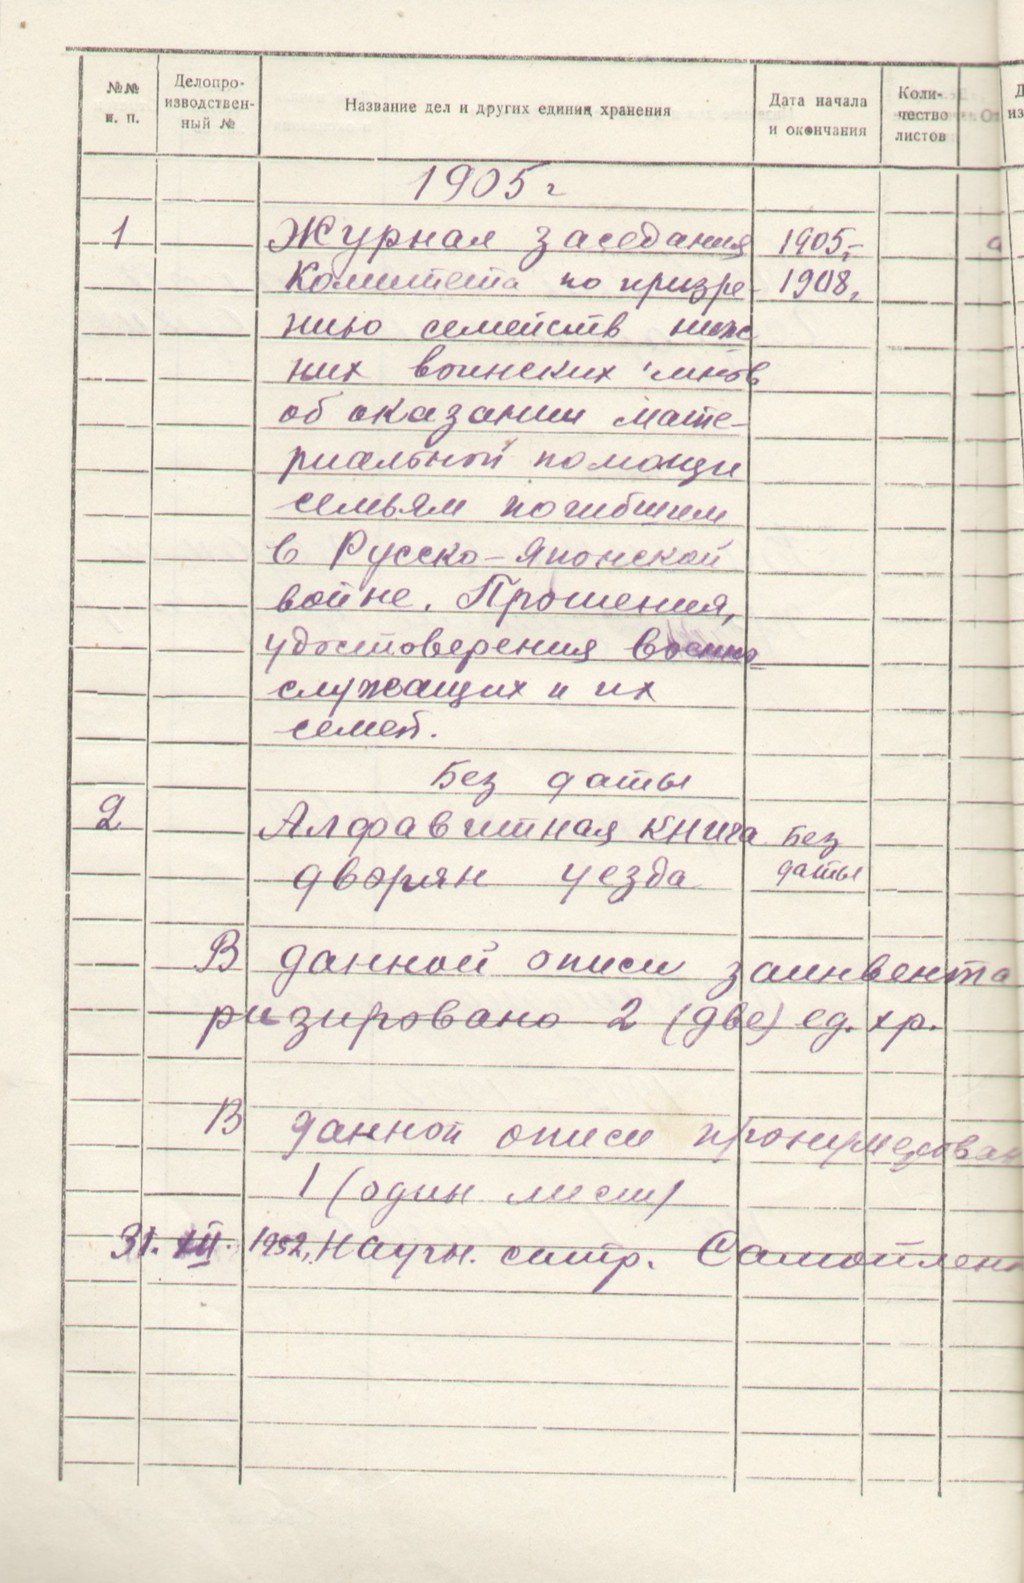 №№ п. п.
Делопро-
изводствен-
ный №
Название дел и других единиц хранения
Дата начала
и окончания
Коли-
чество
листов
1905 г
1 Журнал заседания 1905,-
Комитета по призре- 1908,
нию семейств ниж
них воинских чинов
об оказании мате-
риальной помощи
семьям погибшим
в Русско-Японской
войне. Прошения,
удостоверения военно
служащих и их
семей.
Без даты
2 Алфавитная книга Без
дворян уезда даты
В данной описи заинвента
ризировано 2 (две) ед. хр.
В данной описи пронумерован
1 (один лист)
31. XII. 1952, Научн. сотр.